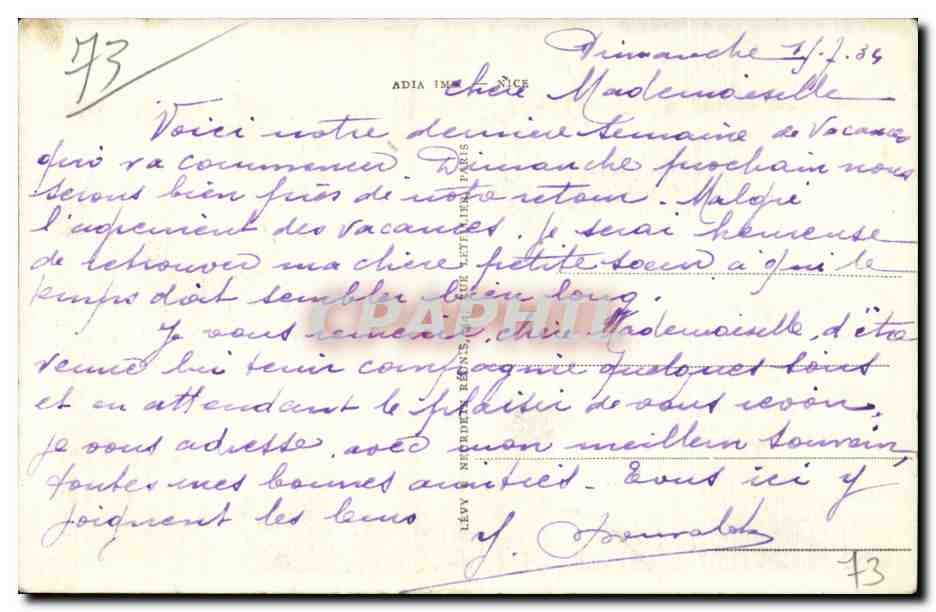 73
Dimanche 15.7.34
ADIA IMP. — NICE
chère Mademoiselle
Voici notre dernière semaine de vacances
qui va commencer. Dimanche prochain nous
serons bien près de notre retour. Malgré
l'agrément des vacances, je serai heureuse
de retrouver ma chère petite sœur à qui le
temps doit sembler bien long.
Je vous remercie, chère Mademoiselle, d'être
venue lui tenir compagnie quelques soirs
et en attendant le plaisir de vous revoir,
je vous adresse, avec mon meilleur souvenir,
toutes mes bonnes amitiés. Tous ici y
joignent les leurs
Y.
73
LÉVY & NEURDEIN RÉUNIS, 44, RUE LETELLIER, PARIS
CPAPHIL